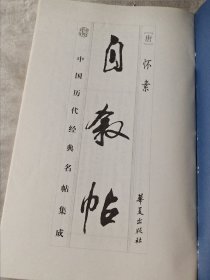 [唐] 怀素
自叙帖
中国历代经典名帖集成
华夏出版社